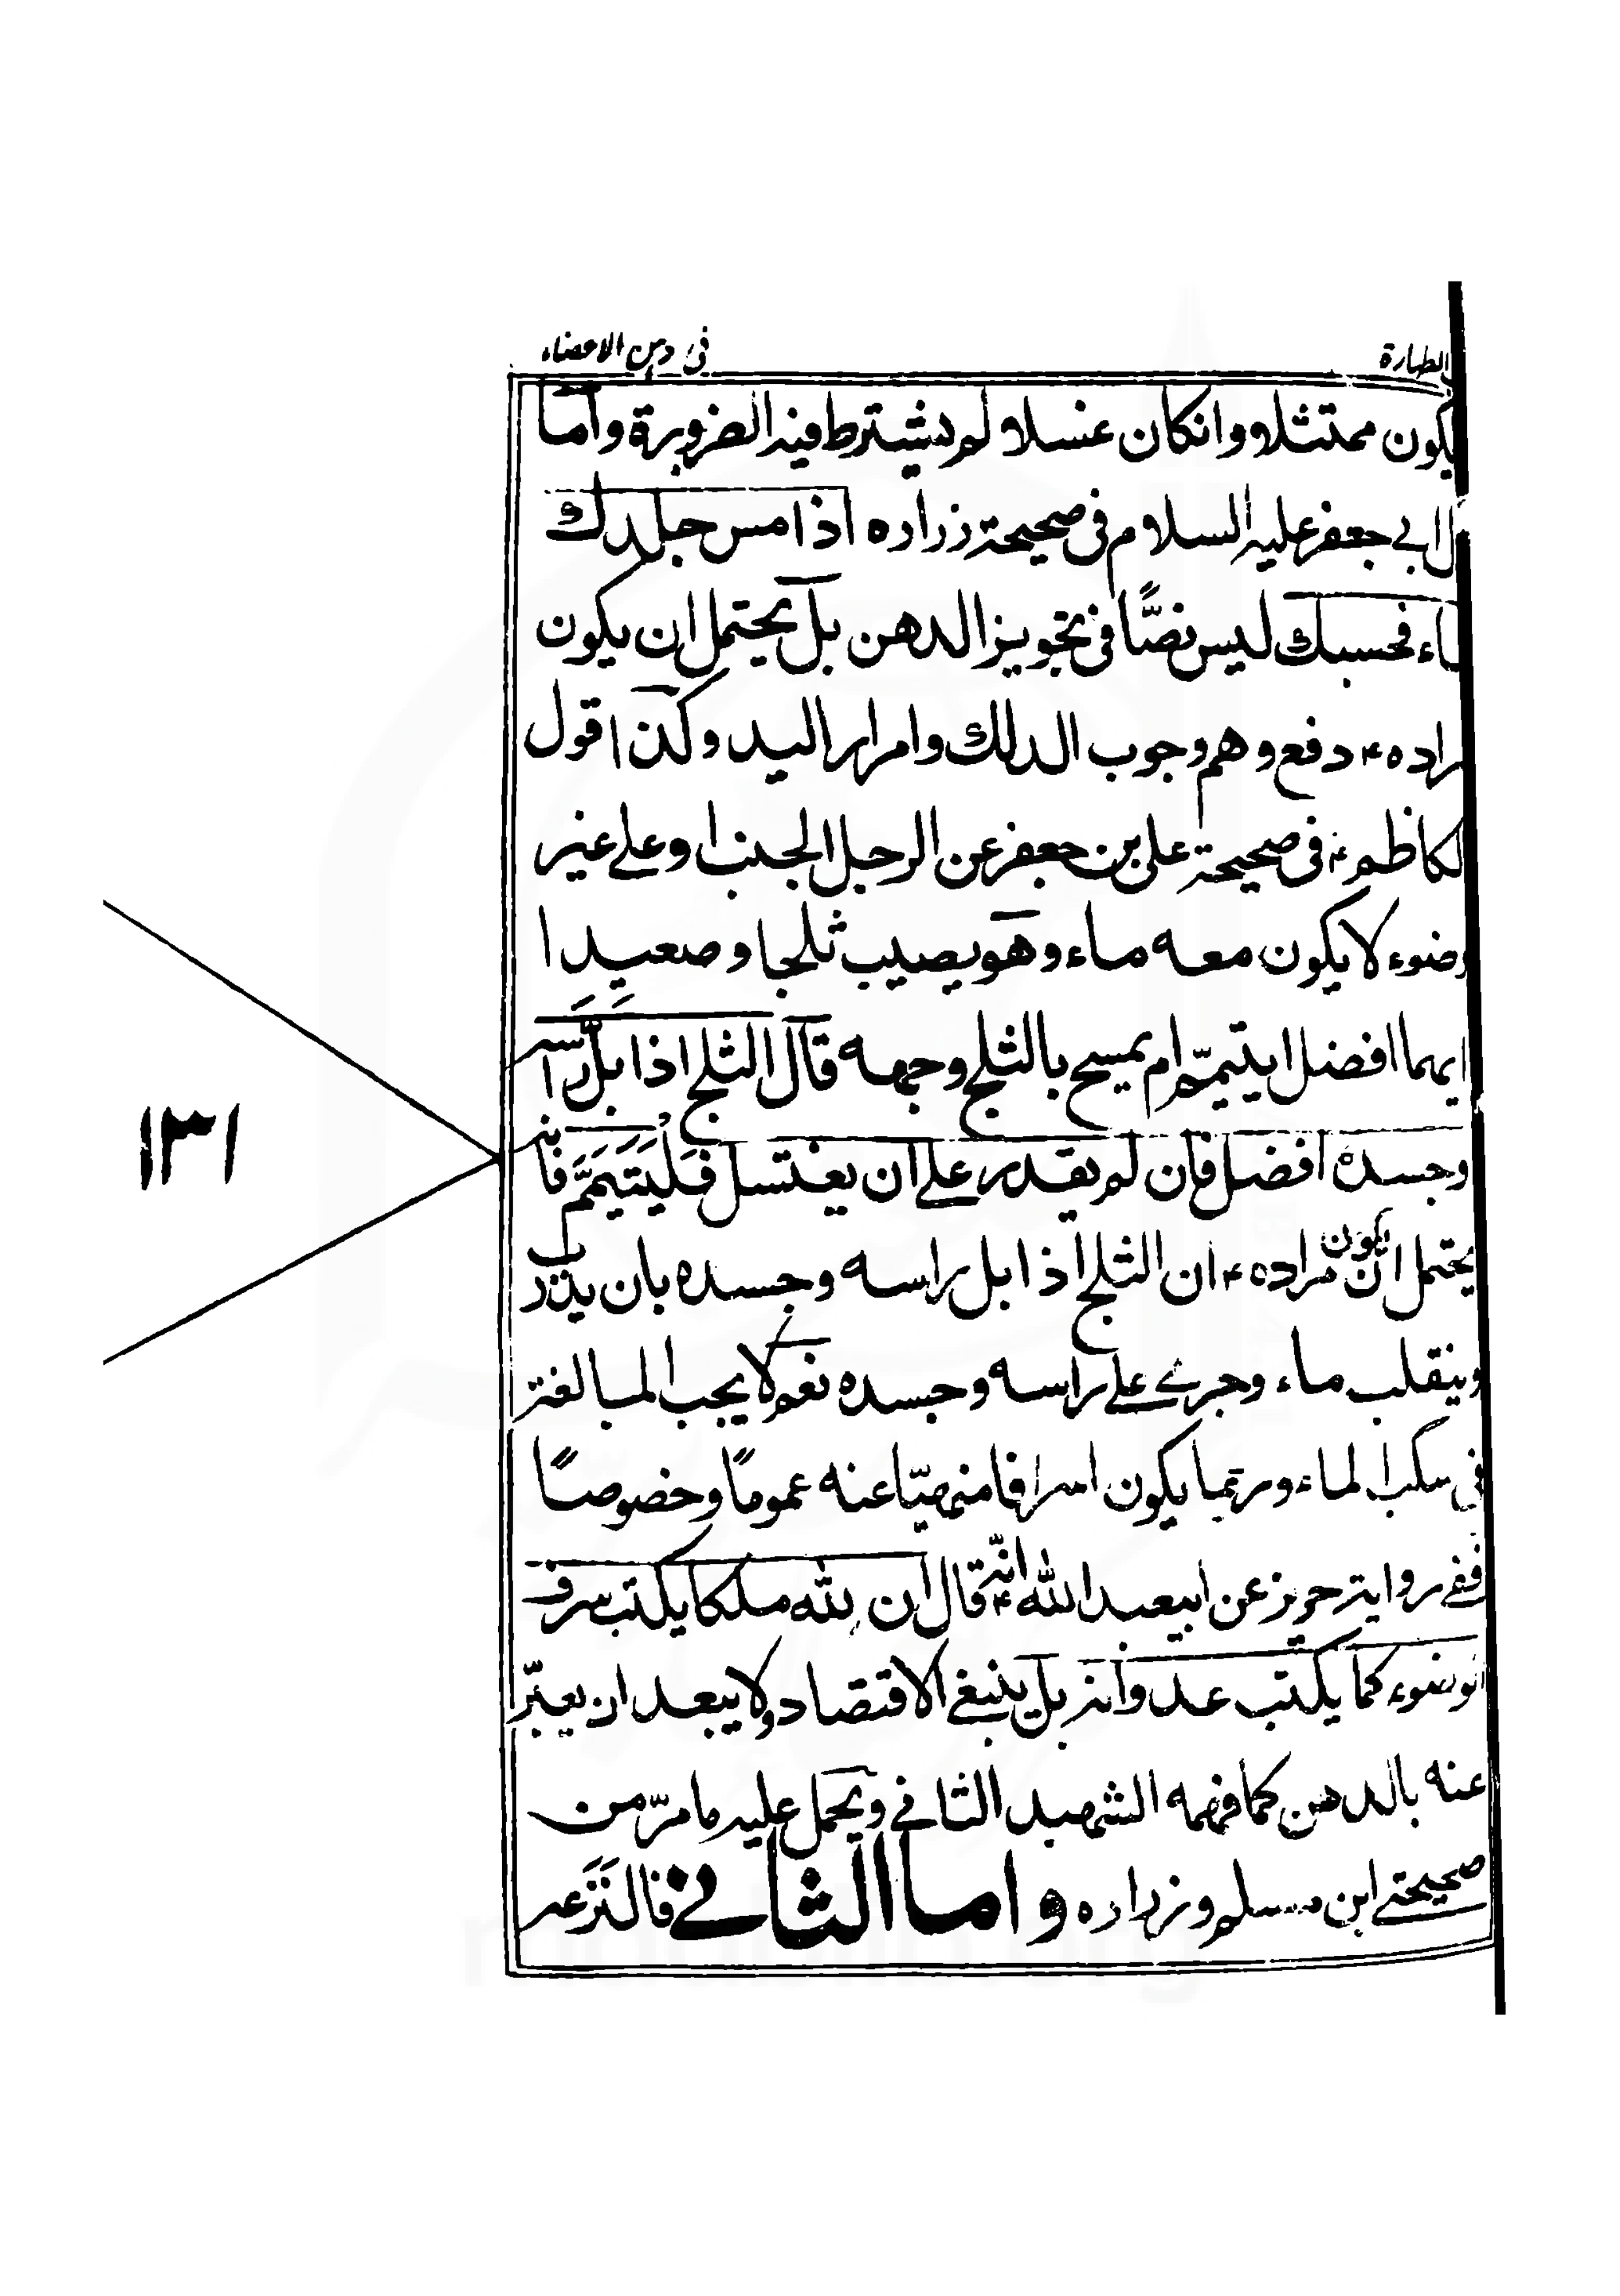 الطهارة
فى دهن الاعضاء
يكون ممتثلا و وانكان غسلا لم يشترط فيه الضرورة واما
ل ابى جعفر عليه السلام فى صحيحة زراره اذا مس جلدك
لماء فحسبك ليس نصًّا فى تجويز الدهن بل يحتمل ان يكون
مراده ء دفع وهم وجوب الدلك وامرار اليد وكذا قول
الكاظم ء فى صحيحة على بن جعفر عن الرجل الجنب او على غير
وضوء لا يكون معه ماء وهو يصيب ثلجا وصعيدا
ايهما افضل ايتيمّم ام يمسح بالثلج وجهه قال الثلج اذا بلّ راسه
وجسده افضل فان لم يقدر على ان يغتسل فليتيمّم فانه
يحتمل ان يكون مراده ء ان الثلج اذا بل راسه وجسده بان يذوب
وينقلب ماء وجرى على راسه وجسده نعم لا يجب المبالغة
فى سكب الماء وربّما يكون اسرافا منهيّا عنه عمومًا وخصوصًا
ففى رواية حريز عن ابيعبد الله ء انّه قال ان لله ملكا يكتب سرف
الوضوء كما يكتب عدوانه بل ينبغى الاقتصاد ولا يبعد ان يعبّر
عنه بالدهن كما فهمه الشهيد الثانى ويحمل عليه ما مرّ من
صحيحتى ابن مسلم وزراره واما الثانى فالنزعه
١٣١